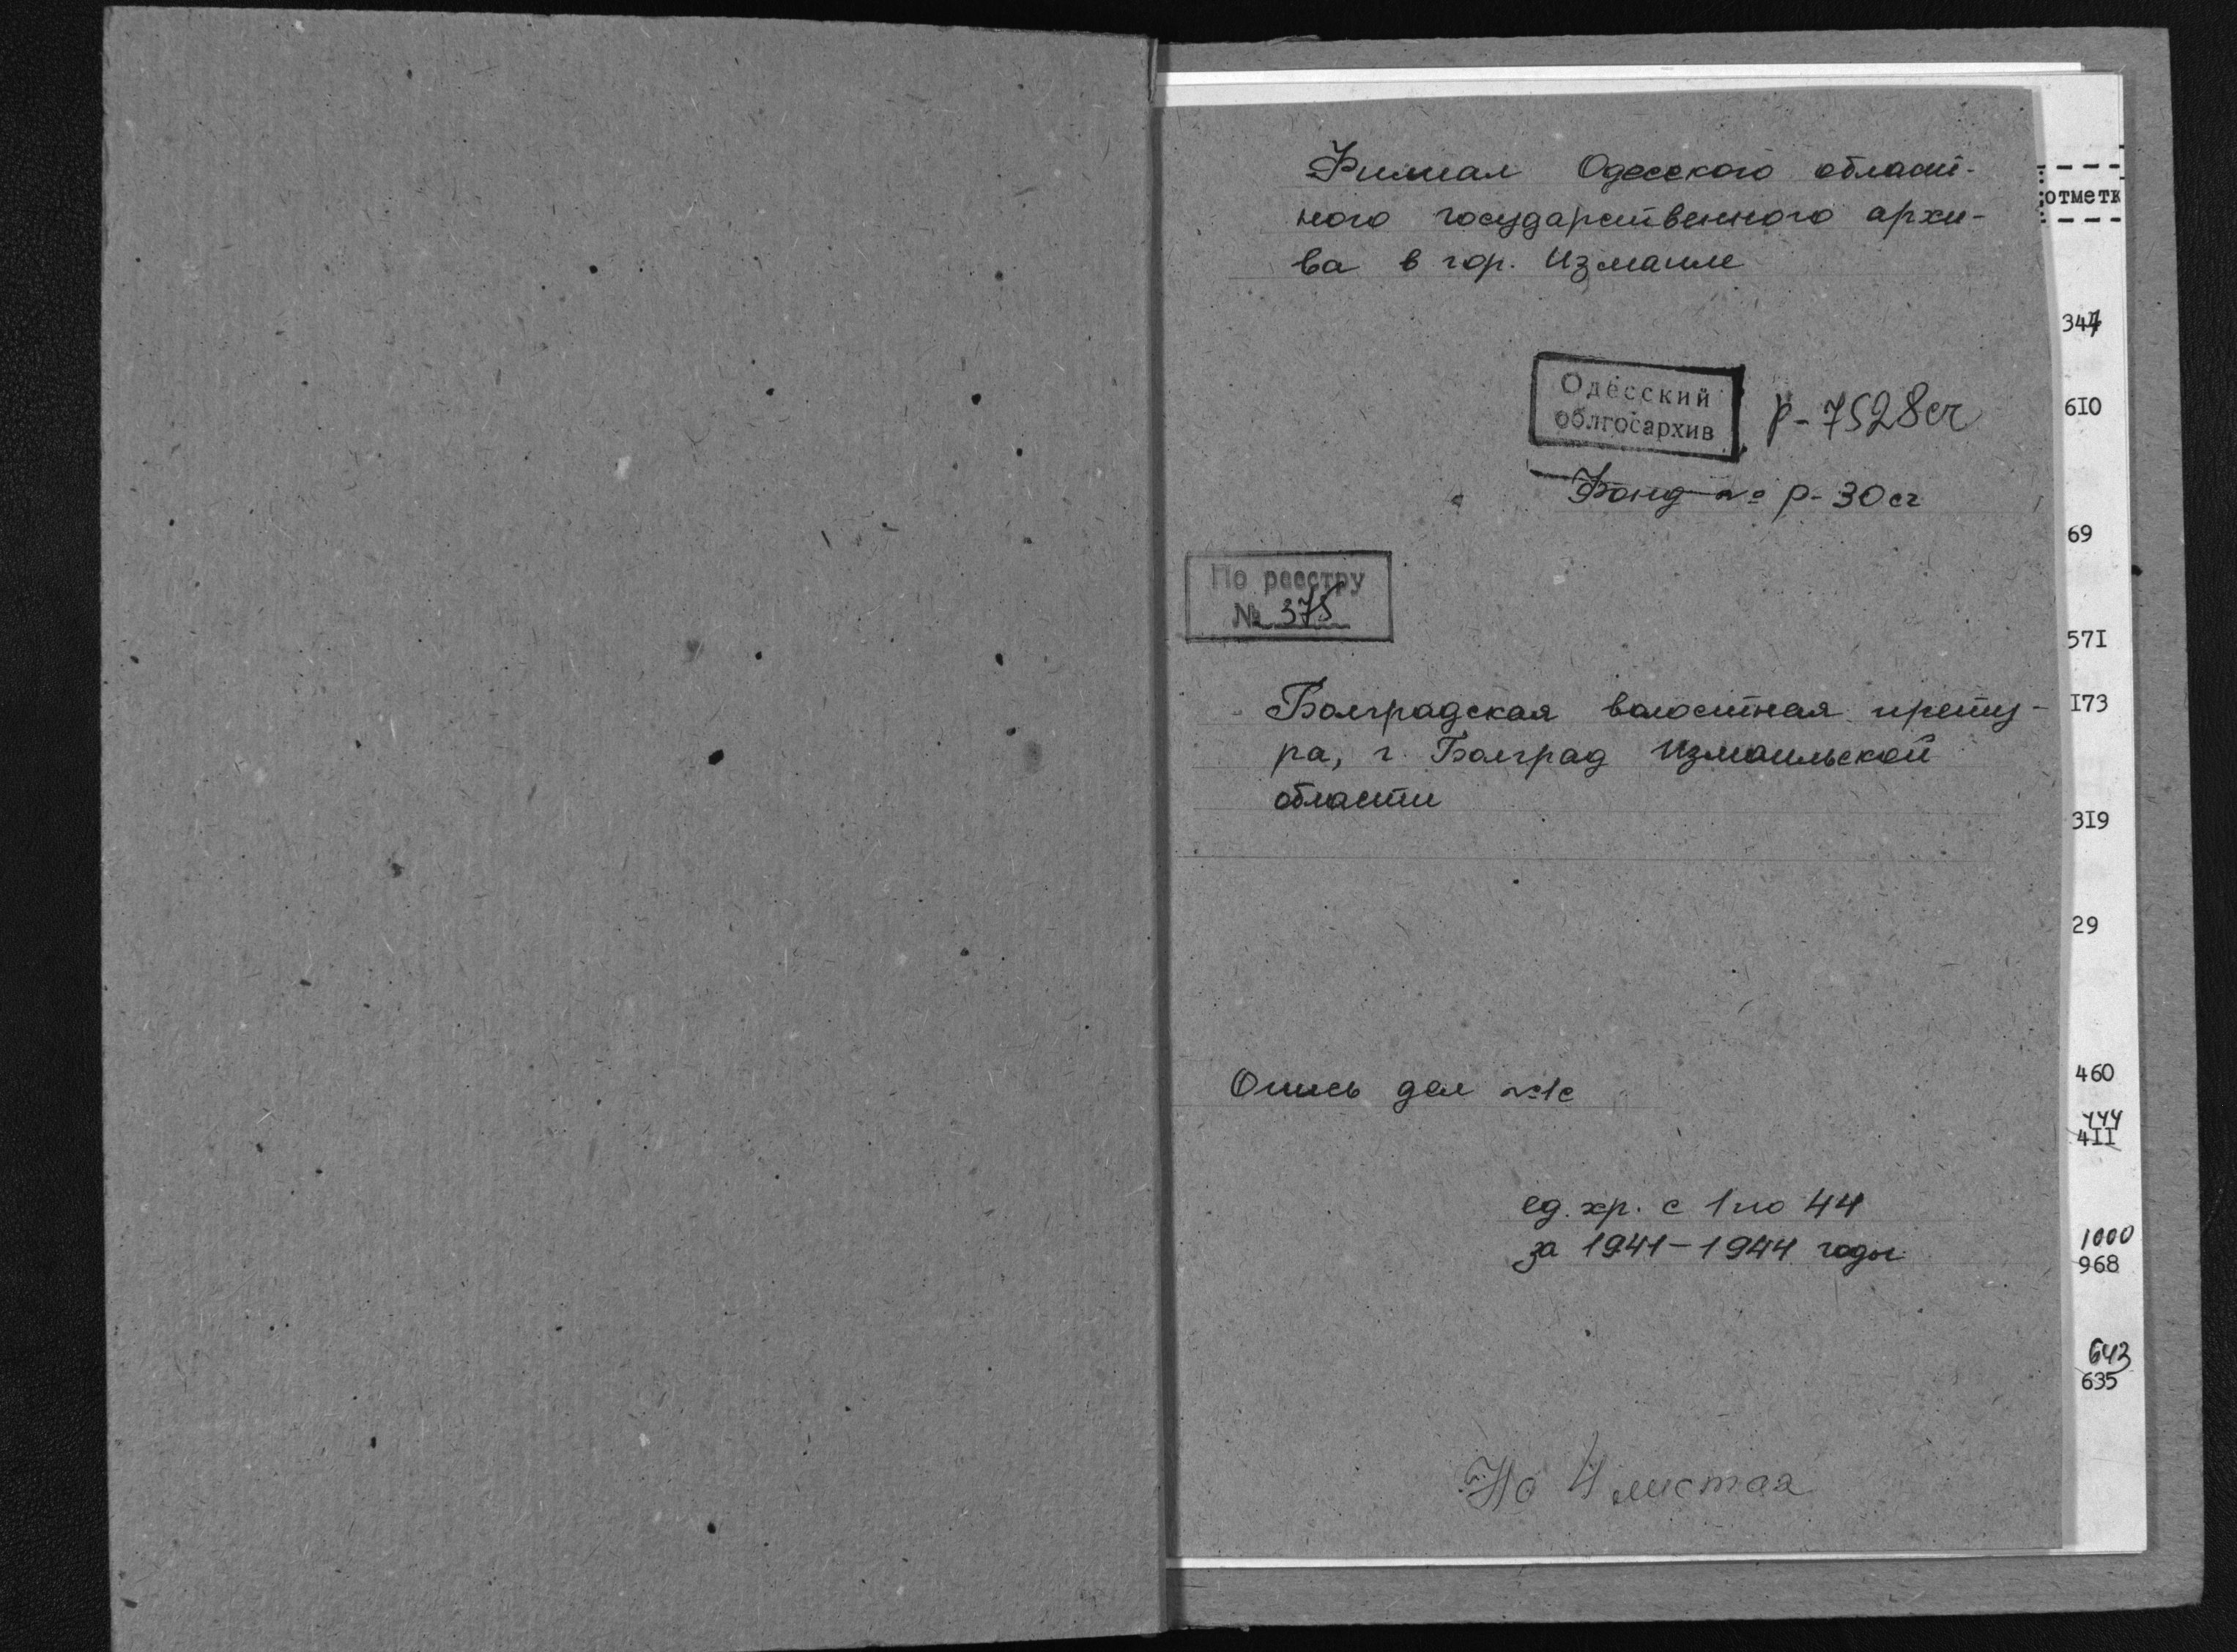 Филиал Одесского област-
ного государственного архи-
ва в гор. Измаиле
Одесский
облгосархив
Р-7528сч
Фонд № Р-30сг
По реестру
№ 375
Болградская волостная прету-
ра, г. Болград Измаильской
области
Опись дел №1с
ед. хр. с 1 по 44
за 1941-1944 годы
На 4 листах
отметк
344
6I0
69
57I
I73
3I9
29
460
444
4II
1000
968
643
635